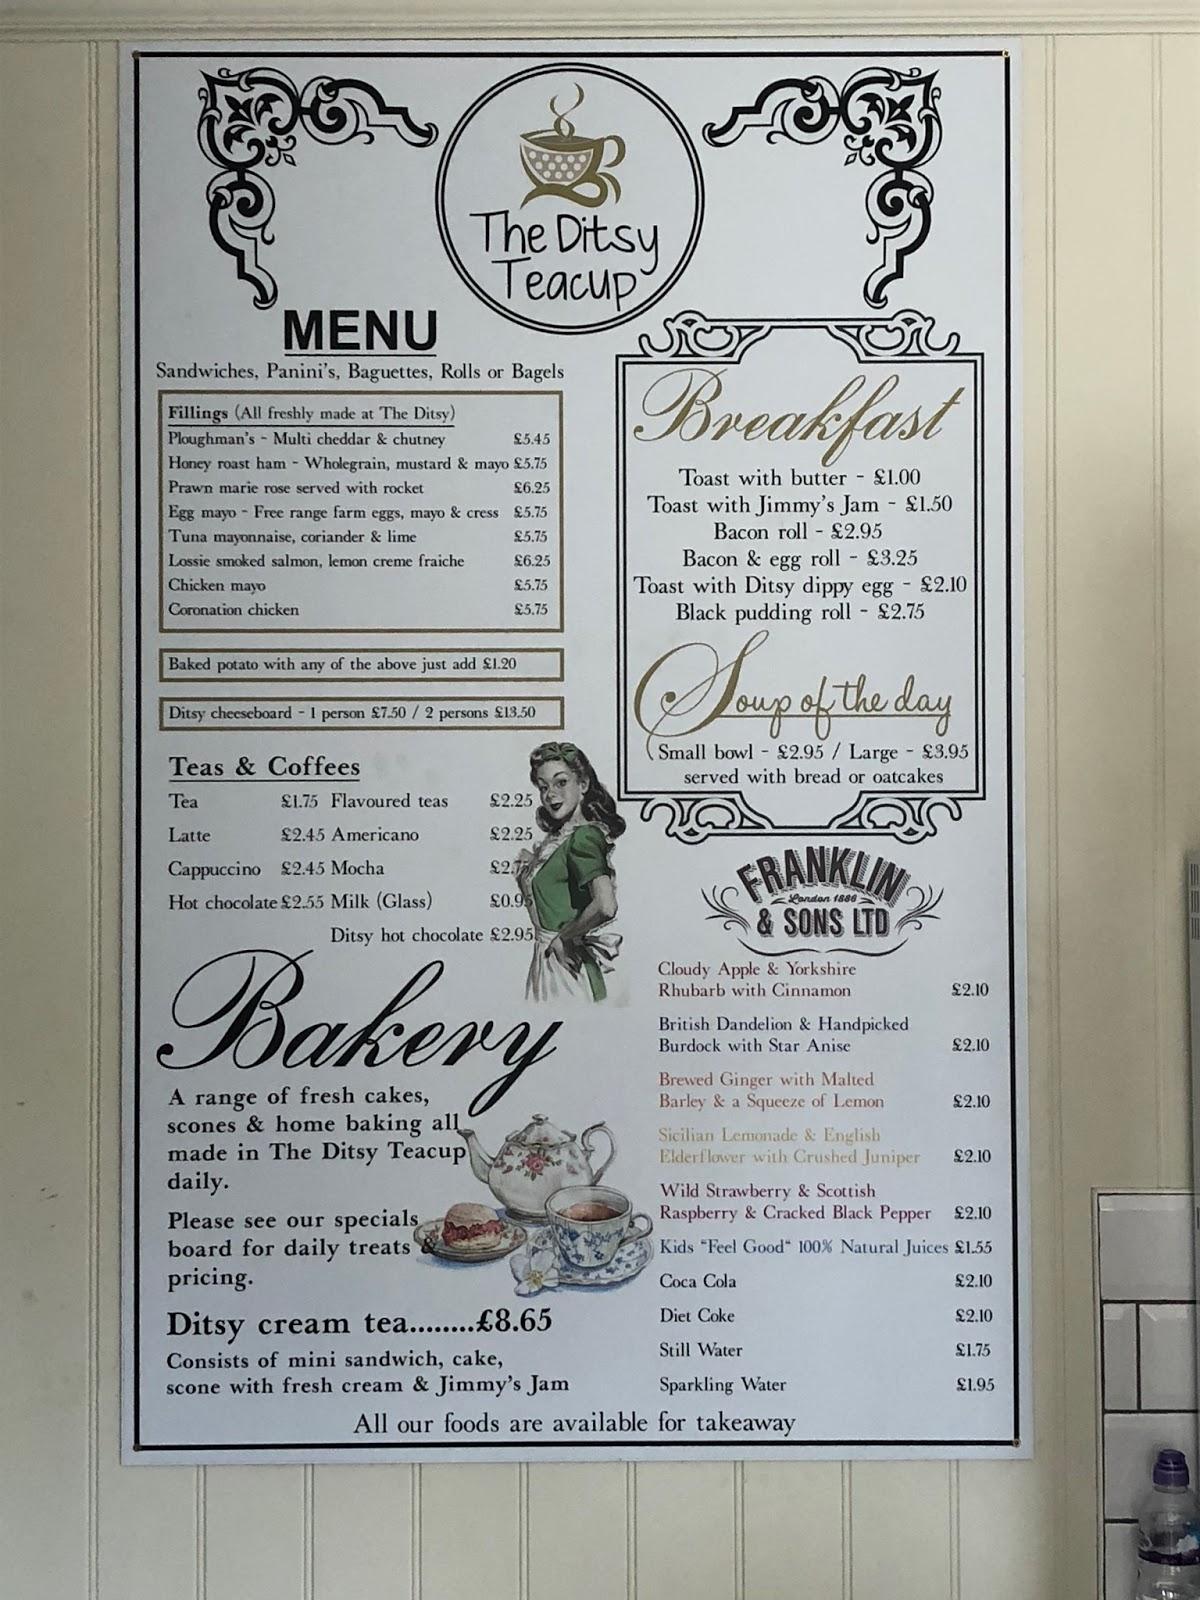 The Ditsy
Teacup
MENU
Sandwiches, Panini's, Baguettes, Rolls or Bagels
Fillings (All freshly made at The Ditsy)
Ploughman's - Multi cheddar & chutney £5.45
Honey roast ham - Wholegrain, mustard & mayo £5.75
Prawn marie rose served with rocket £6.25
Egg mayo - Free range farm eggs, mayo & cress £5.75
Tuna mayonnaise, coriander & lime £5.75
Lossie smoked salmon, lemon creme fraiche £6.25
Chicken mayo £5.75
Coronation chicken £5.75
Baked potato with any of the above just add £1.20
Ditsy cheeseboard - 1 person £7.50 / 2 persons £13.50
Teas & Coffees
Tea £1.75 Flavoured teas £2.25
Latte £2.45 Americano £2.25
Cappuccino £2.45 Mocha £2.75
Hot chocolate £2.55 Milk (Glass) £0.95
Ditsy hot chocolate £2.95
Bakery
A range of fresh cakes,
scones & home baking all
made in The Ditsy Teacup
daily.
Please see our specials
board for daily treats &
pricing.
Ditsy cream tea........£8.65
Consists of mini sandwich, cake,
scone with fresh cream & Jimmy's Jam
Breakfast
Toast with butter - £1.00
Toast with Jimmy's Jam - £1.50
Bacon roll - £2.95
Bacon & egg roll - £3.25
Toast with Ditsy dippy egg - £2.10
Black pudding roll - £2.75
Soup of the day
Small bowl - £2.95 / Large - £3.95
served with bread or oatcakes
FRANKLIN
London 1886
& SONS LTD
Cloudy Apple & Yorkshire
Rhubarb with Cinnamon £2.10
British Dandelion & Handpicked
Burdock with Star Anise £2.10
Brewed Ginger with Malted
Barley & a Squeeze of Lemon £2.10
Sicilian Lemonade & English
Elderflower with Crushed Juniper £2.10
Wild Strawberry & Scottish
Raspberry & Cracked Black Pepper £2.10
Kids "Feel Good" 100% Natural Juices £1.55
Coca Cola £2.10
Diet Coke £2.10
Still Water £1.75
Sparkling Water £1.95
All our foods are available for takeaway